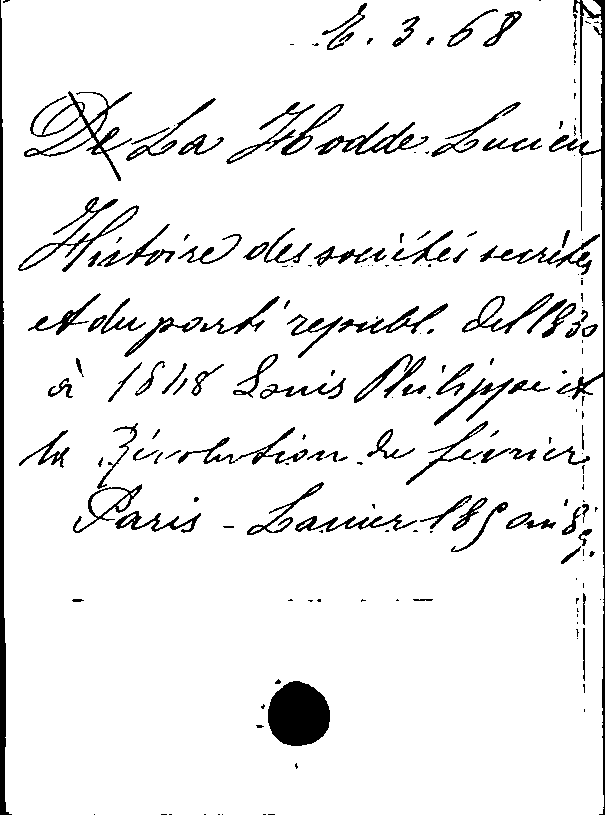 E. 3. 68
De La Hodde Lucien
Histoire des sociétés secrètes
et du parti républ. de 1830
à 1848 Louis Philippe et
la Révolution de février
Paris - Lanier 1850 in 8º.